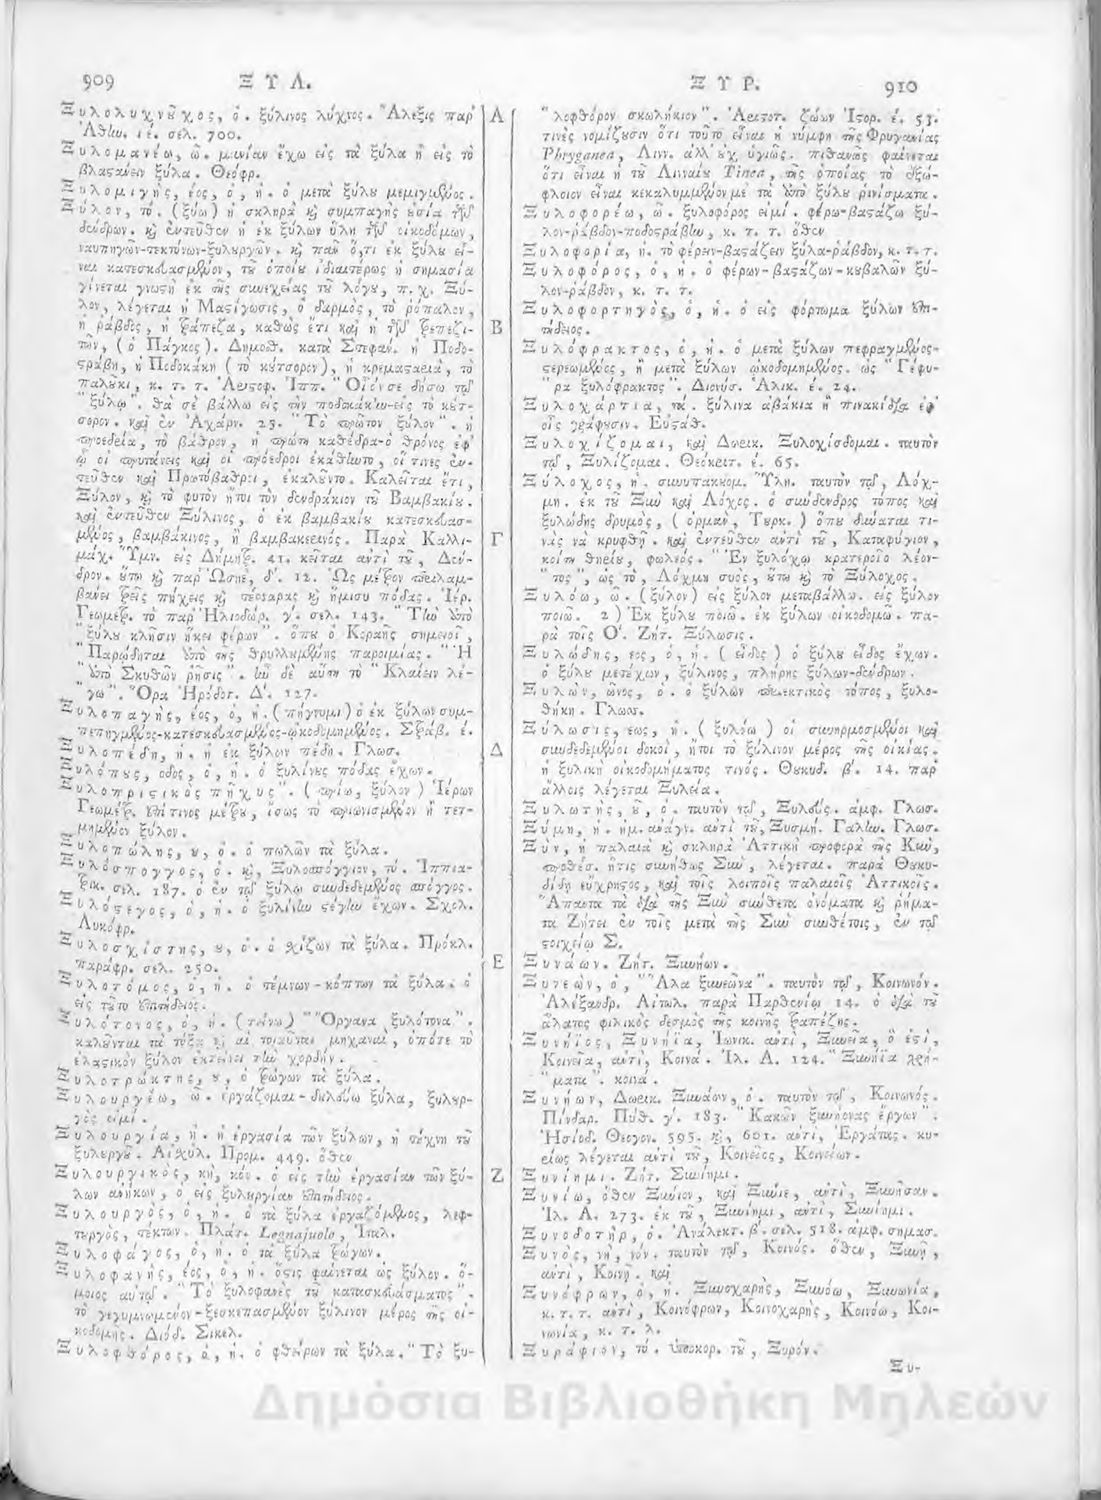 909 ΞΥΛ.
Ξυλολυχνοῦχος, ὁ. ξύλινος λύχνος. Ἄλεξις παρ'
Ἀθην. ιέ. σελ. 700.
Ξυλομανέω, ῶ. μανίαν ἔχω εἰς τὰ ξύλα ἢ εἰς τὸ
βλαστάνειν ξύλα. Θεόφρ.
Ξυλομιγὴς, έος, ὁ, ἡ. ὁ μετὰ ξύλου μεμιγμένος.
Ξύλον, τό. (ξύω) ἡ σκληρὰ καὶ συμπαγὴς οὐσία τῶν
δένδρων. καὶ ἐντεῦθεν ἡ ἐκ ξύλων ὕλη τῶν οἰκοδόμων,
ναυπηγῶν-τεκτόνων-ξυλουργῶν. καὶ πᾶν ὅ,τι ἐκ ξύλου εἶ-
ναι κατεσκευασμένον, τοῦ ὁποίου ἰδιαιτέρως ἡ σημασία
γίνεται γνωστὴ ἐκ τῆς συνεχείας τοῦ λόγου, π. χ. Ξύ-
λον, λέγεται ἡ Μαστίγωσις, ὁ δαρμὸς, τὸ ῥόπαλον,
ἡ ῥάβδος, ἡ τράπεζα, καθὼς ἔτι καὶ ἡ τῶν τραπεζι-
τῶν, (ὁ Πάγκος). Δημοσθ. κατὰ Στεφάν. ἡ Ποδο-
στράβη, ἡ Ποδοκάκη (τὸ κούτσορον), ἡ κρεμασταριὰ, τὸ
παλοῦκι, κ. τ. τ. Ἀριστοφ. Ἱππ. "Οἷόν σε δήσω τῷ
"ξύλῳ". θὰ σὲ βάλλω εἰς τὴν ποδοκάκην-εἰς τὸ κούτ-
σορον. καὶ ἐν Ἀχάρν. 25. "Τὸ πρῶτον ξύλον". ἡ
προεδρεία, τὸ βάθρον, ἡ πρώτη καθέδρα-ὁ θρόνος ἐφ'
ᾧ οἱ πρυτάνεις καὶ οἱ πρόεδροι ἐκάθηντο, οἵ τινες ἐν-
τεῦθεν καὶ Πρωτόβαθροι, ἐκαλοῦντο. Καλεῖται ἔτι,
Ξύλον, καὶ τὸ φυτὸν ἤτοι τὸν δενδράκιον τοῦ Βαμβακίου.
καὶ ἐντεῦθεν Ξύλινος, ὁ ἐκ βαμβακίου κατεσκευασ-
μένος, βαμβάκινος, ἢ βαμβακερινός. Παρὰ Καλλι-
μάχ. Ὕμν. εἰς Δήμητρ. 41. κεῖται ἀντὶ τοῦ, Δέν-
δρον. οὕτω καὶ παρ' Ὡσηὲ, δ'. 12. Ὡς μέτρον περιλαμ-
βάνει τρεῖς πήχεις καὶ τέσσαρας καὶ ἥμισυ πόδας. Ἱέρ.
Γεωμέτρ. τὸ παρ' Ἡλιοδώρ. γ'. σελ. 143. "Τὴν ὑπὸ
"ξύλου κλῆσιν ἥκει φέρων". ὅπου ὁ Κοραῆς σημειοῖ,
"Παρῴδηται ὑπὸ τῆς θρυλλουμένης παροιμίας. "Ἡ
"ὑπὸ Σκυθῶν ῥῆσις". ἦν δὲ αὕτη τὸ "Κλαίειν λέ-
γω". Ὅρα Ἡρόδοτ. Δ'. 127.
Ξυλοπαγὴς, έος, ὁ, ἡ. (πήγνυμι) ὁ ἐκ ξύλων συμ-
πεπηγμένος-κατεσκευασμένος-ᾠκοδομημένος. Στράβ. έ.
Ξυλοπέδη, η. ἡ ἐκ ξύλων πέδη. Γλωσ.
Ξυλόπους, οδος, ὁ, ἡ. ὁ ξυλίνους πόδας ἔχων.
Ξυλοπριστικὸς πῆχυς". (πρίω, ξύλον) Ἱέρων
Γεωμέτρ. ἐπί τινος μέτρου, ἴσως τὸ πριωνισμένον ἢ τετ-
μημένον ξύλον.
Ξυλοπώλης, ου, ὁ. ὁ πωλῶν τὰ ξύλα.
Ξυλόσπογγος, ὁ. καὶ, Ξυλοσπόγγιον, τό. Ἱππια-
τρικ. σελ. 187. ὁ ἐν τῷ ξύλῳ συνδεδεμένος σπόγγος.
Ξυλόστεγος, ὁ, ἡ. ὁ ξυλίνην στέγην ἔχων. Σχολ.
Λυκόφρ.
Ξυλοσχίστης, ου, ὁ. ὁ σχίζων τὰ ξύλα. Πρόκλ.
παράφρ. σελ. 250.
Ξυλοτόμος, ὁ, ἡ. ὁ τέμνων-κόπτων τὰ ξύλα. ὁ
εἰς τοῦτο ἐπιτήδειος.
Ξυλότονος, ὁ, ἡ. (τείνω) "Ὄργανα ξυλότονα".
καλοῦνται τὰ τόξα καὶ αἱ τοιαῦται μηχαναὶ, ὁπότε τὸ
ἐλαστικὸν ξύλον ἐκτείνει τὴν χορδήν.
Ξυλοτρώκτης, ου, ὁ τρώγων τὰ ξύλα.
Ξυλουργέω, ῶ. ἐργάζομαι-δουλεύω ξύλα, ξυλουρ-
γός εἰμι.
Ξυλουργία, η. ἡ ἐργασία τῶν ξύλων, ἡ τέχνη τοῦ
ξυλουργοῦ. Αἰσχύλ. Προμ. 449. ὅθεν
Ξυλουργικὸς, κὴ, κόν. ὁ εἰς τὴν ἐργασίαν τῶν ξύ-
λων ἀνήκων, ὁ εἰς ξυλουργίαν ἐπιτήδειος.
Ξυλουργὸς, ὁ, ἡ. ὁ τὰ ξύλα ἐργαζόμενος, λεφ-
τουργὸς, τέκτων. Πλάτ. Legnajuolo, Ἰταλ.
Ξυλοφάγος, ὁ, ἡ. ὁ τὰ ξύλα τρώγων.
Ξυλοφανὴς, έος, ὁ, ἡ. ὅστις φαίνεται ὡς ξύλον. ὅ-
μοιος αὐτῷ. "Τὸ ξυλοφανὲς τοῦ κατασκευάσματος".
τὸ γεγυμνωμένον-ξεσκεπασμένον ξύλινον μέρος τῆς οἰ-
κοδομῆς. Διόδ. Σικελ.
Ξυλοφθόρος, ὁ, ἡ. ὁ φθείρων τὰ ξύλα. "Τὸ ξυ-
Α
Β
Γ
Δ
Ε
Ζ
ΞΥΡ. 910
"λοφθόρον σκωλήκιον". Ἀριστοτ. ζώων Ἱστορ. έ. 53.
τινὲς νομίζουσιν ὅτι τοῦτο εἶναι ἡ νύμφη τῆς Φρυγανίας
Phryganea, Λινν. ἀλλ' οὐχ ὑγιῶς. πιθανῶς φαίνεται
ὅτι εἶναι ἡ τοῦ Λινναίου Tinea, τῆς ὁποίας τὸ ἐξώ-
φλοιον εἶναι κεκαλυμμένον μὲ τὰ ἀπὸ ξύλου ῥινίσματα.
Ξυλοφορέω, ῶ. ξυλοφόρος εἰμί. φέρω-βαστάζω ξύ-
λον-ῥάβδον-ποδοστράβην, κ. τ. τ. ὅθεν
Ξυλοφορία, η. τὸ φέρειν-βαστάζειν ξύλα-ῥάβδον, κ. τ. τ.
Ξυλοφόρος, ὁ, ἡ. ὁ φέρων-βαστάζων-κουβαλῶν ξύ-
λον-ῥάβδον, κ. τ. τ.
Ξυλοφορτηγὸς, ὁ, ἡ. ὁ εἰς φόρτωμα ξύλων ἐπι-
τήδειος.
Ξυλόφρακτος, ὁ, ἡ. ὁ μετὰ ξύλων πεφραγμένος-
στερεωμένος, ἢ μετὰ ξύλων ᾠκοδομημένος. ὡς "Γέφυ-
"ρα ξυλόφρακτος". Διονύσ. Ἁλικ. έ. 24.
Ξυλοχάρτια, τά. ξύλινα ἀβάκια ἢ πινακίδια ἐφ'
οἷς γράφουσιν. Εὐστάθ.
Ξυλοχίζομαι, καὶ Δωρικ. Ξυλοχίσδομαι. ταυτὸν
τῷ, Ξυλίζομαι. Θεόκριτ. έ. 65.
Ξύλοχος, ἡ. συνυπακουομ. Ὕλη. ταυτὸν τῷ, Λόχ-
μη. ἐκ τοῦ Ξὺν καὶ Λόχος. ὁ σύνδενδρος τόπος καὶ
ξυλώδης δρυμὸς, (ὀρμὰν, Τουρκ.) ὅπου δύναταί τι-
νὰς νὰ κρυφθῇ. καὶ ἐντεῦθεν ἀντὶ τοῦ, Καταφύγιον,
κοίτη θηρίου, φωλεός. "Ἐν ξυλόχῳ κρατεροῖο λέον-
"τος", ὡς τὸ, Λόχμη συὸς, οὕτω καὶ τὸ Ξύλοχος.
Ξυλόω, ῶ. (ξύλον) εἰς ξύλον μεταβάλλω. εἰς ξύλον
ποιῶ. 2) Ἐκ ξύλου ποιῶ. ἐκ ξύλων οἰκοδομῶ. πα-
ρὰ τοῖς Ο'. Ζήτ. Ξύλωσις.
Ξυλώδης, εος, ὁ, ἡ. (εἶδος) ὁ ξύλου εἶδος ἔχων.
ὁ ξύλου μετέχων, ξύλινος, πλήρης ξύλων-δένδρων.
Ξυλὼν, ῶνος, ὁ. ὁ ξύλων περιεκτικὸς τόπος, ξυλο-
θήκη. Γλωσσ.
Ξύλωσις, εως, ἡ. (ξυλόω) οἱ συνηρμοσμένοι καὶ
συνδεδεμένοι δοκοὶ, ἤτοι τὸ ξύλινον μέρος τῆς οἰκίας.
ἡ ξυλικὴ οἰκοδομήματός τινος. Θουκυδ. β'. 14. παρ'
ἄλλοις λέγεται Ξυλεία.
Ξυλωτὴς, οῦ, ὁ. ταυτὸν τῷ, Ξυλεύς. ἀμφ. Γλωσ.
Ξύμη, η. ἡμ. ἀνάγν. ἀντὶ τοῦ, Ξυσμή. Γαλην. Γλωσ.
Ξὺν, ἡ παλαιὰ καὶ σκληρὰ Ἀττικὴ προφορὰ τῆς Κὺν,
προθέσ. ἥτις συνήθως Σὺν, λέγεται. παρὰ Θουκυ-
δίδῃ εὔχρηστος, καὶ τοῖς λοιποῖς παλαιοῖς Ἀττικοῖς.
Ἅπαντα τὰ ἐκ τῆς Ξὺν σύνθετα ὀνόματα καὶ ῥήμα-
τα Ζήτει ἐν τοῖς μετὰ τῆς Σὺν συνθέτοις, ἐν τῷ
στοιχείῳ Σ.
Ξυνάων. Ζήτ. Ξυνήων.
Ξυνεὼν, ὁ, "Ἅλα ξυνεῶνα". ταυτὸν τῷ, Κοινωνόν.
Ἀλέξανδρ. Αἰτωλ. παρὰ Παρθενίῳ 14. ὁ ἐκ τοῦ
ἅλατος φιλικὸς δεσμὸς τῆς κοινῆς τραπέζης.
Ξυνήϊος, Ξυνηΐα, Ἰωνικ. ἀντὶ, Ξυνεῖα, ὅ ἐστι,
Κοινεῖα, ἀντὶ, Κοινά. Ἰλ. Α. 124. "Ξυνήϊα χρή-
"ματα". κοινά.
Ξυνήων, Δωρικ. Ξυνάων, ὁ. ταυτὸν τῷ, Κοινωνός.
Πίνδαρ. Πύθ. γ'. 183. "Κακῶν ξυνήονας ἔργων".
Ἡσίοδ. Θεογον. 595. καὶ, 601. ἀντὶ, Ἐργάτας. κυ-
ρίως λέγεται ἀντὶ τοῦ, Κοινεῖος, Κοινείων.
Ξυνίημι. Ζήτ. Συνίημι.
Ξυνίω, ὅθεν Ξύνιον, καὶ Ξύνιε, ἀντὶ, Ξυνῆσαν.
Ἰλ. Α. 273. ἐκ τοῦ, Ξυνίημι, ἀντὶ, Συνίημι.
Ξυνοδοτὴρ, ὁ. Ἀνάλεκτ. β'. σελ. 518. ἀμφ. σημασ.
Ξυνὸς, νὴ, νόν. ταυτὸν τῷ, Κοινός. ὅθεν, Ξυνῇ,
ἀντὶ, Κοινῇ. καὶ
Ξυνόφρων, ὁ, ἡ. Ξυνοχαρὴς, Ξυνόω, Ξυνωνία,
κ. τ. τ. ἀντὶ, Κοινόφρων, Κοινοχαρὴς, Κοινόω, Κοι-
νωνία, κ. τ. λ.
Ξυράφιον, τό. ὑποκορ. τοῦ, Ξυρόν.
Ξυ-
Δημόσια Βιβλιοθήκη Μηλεών